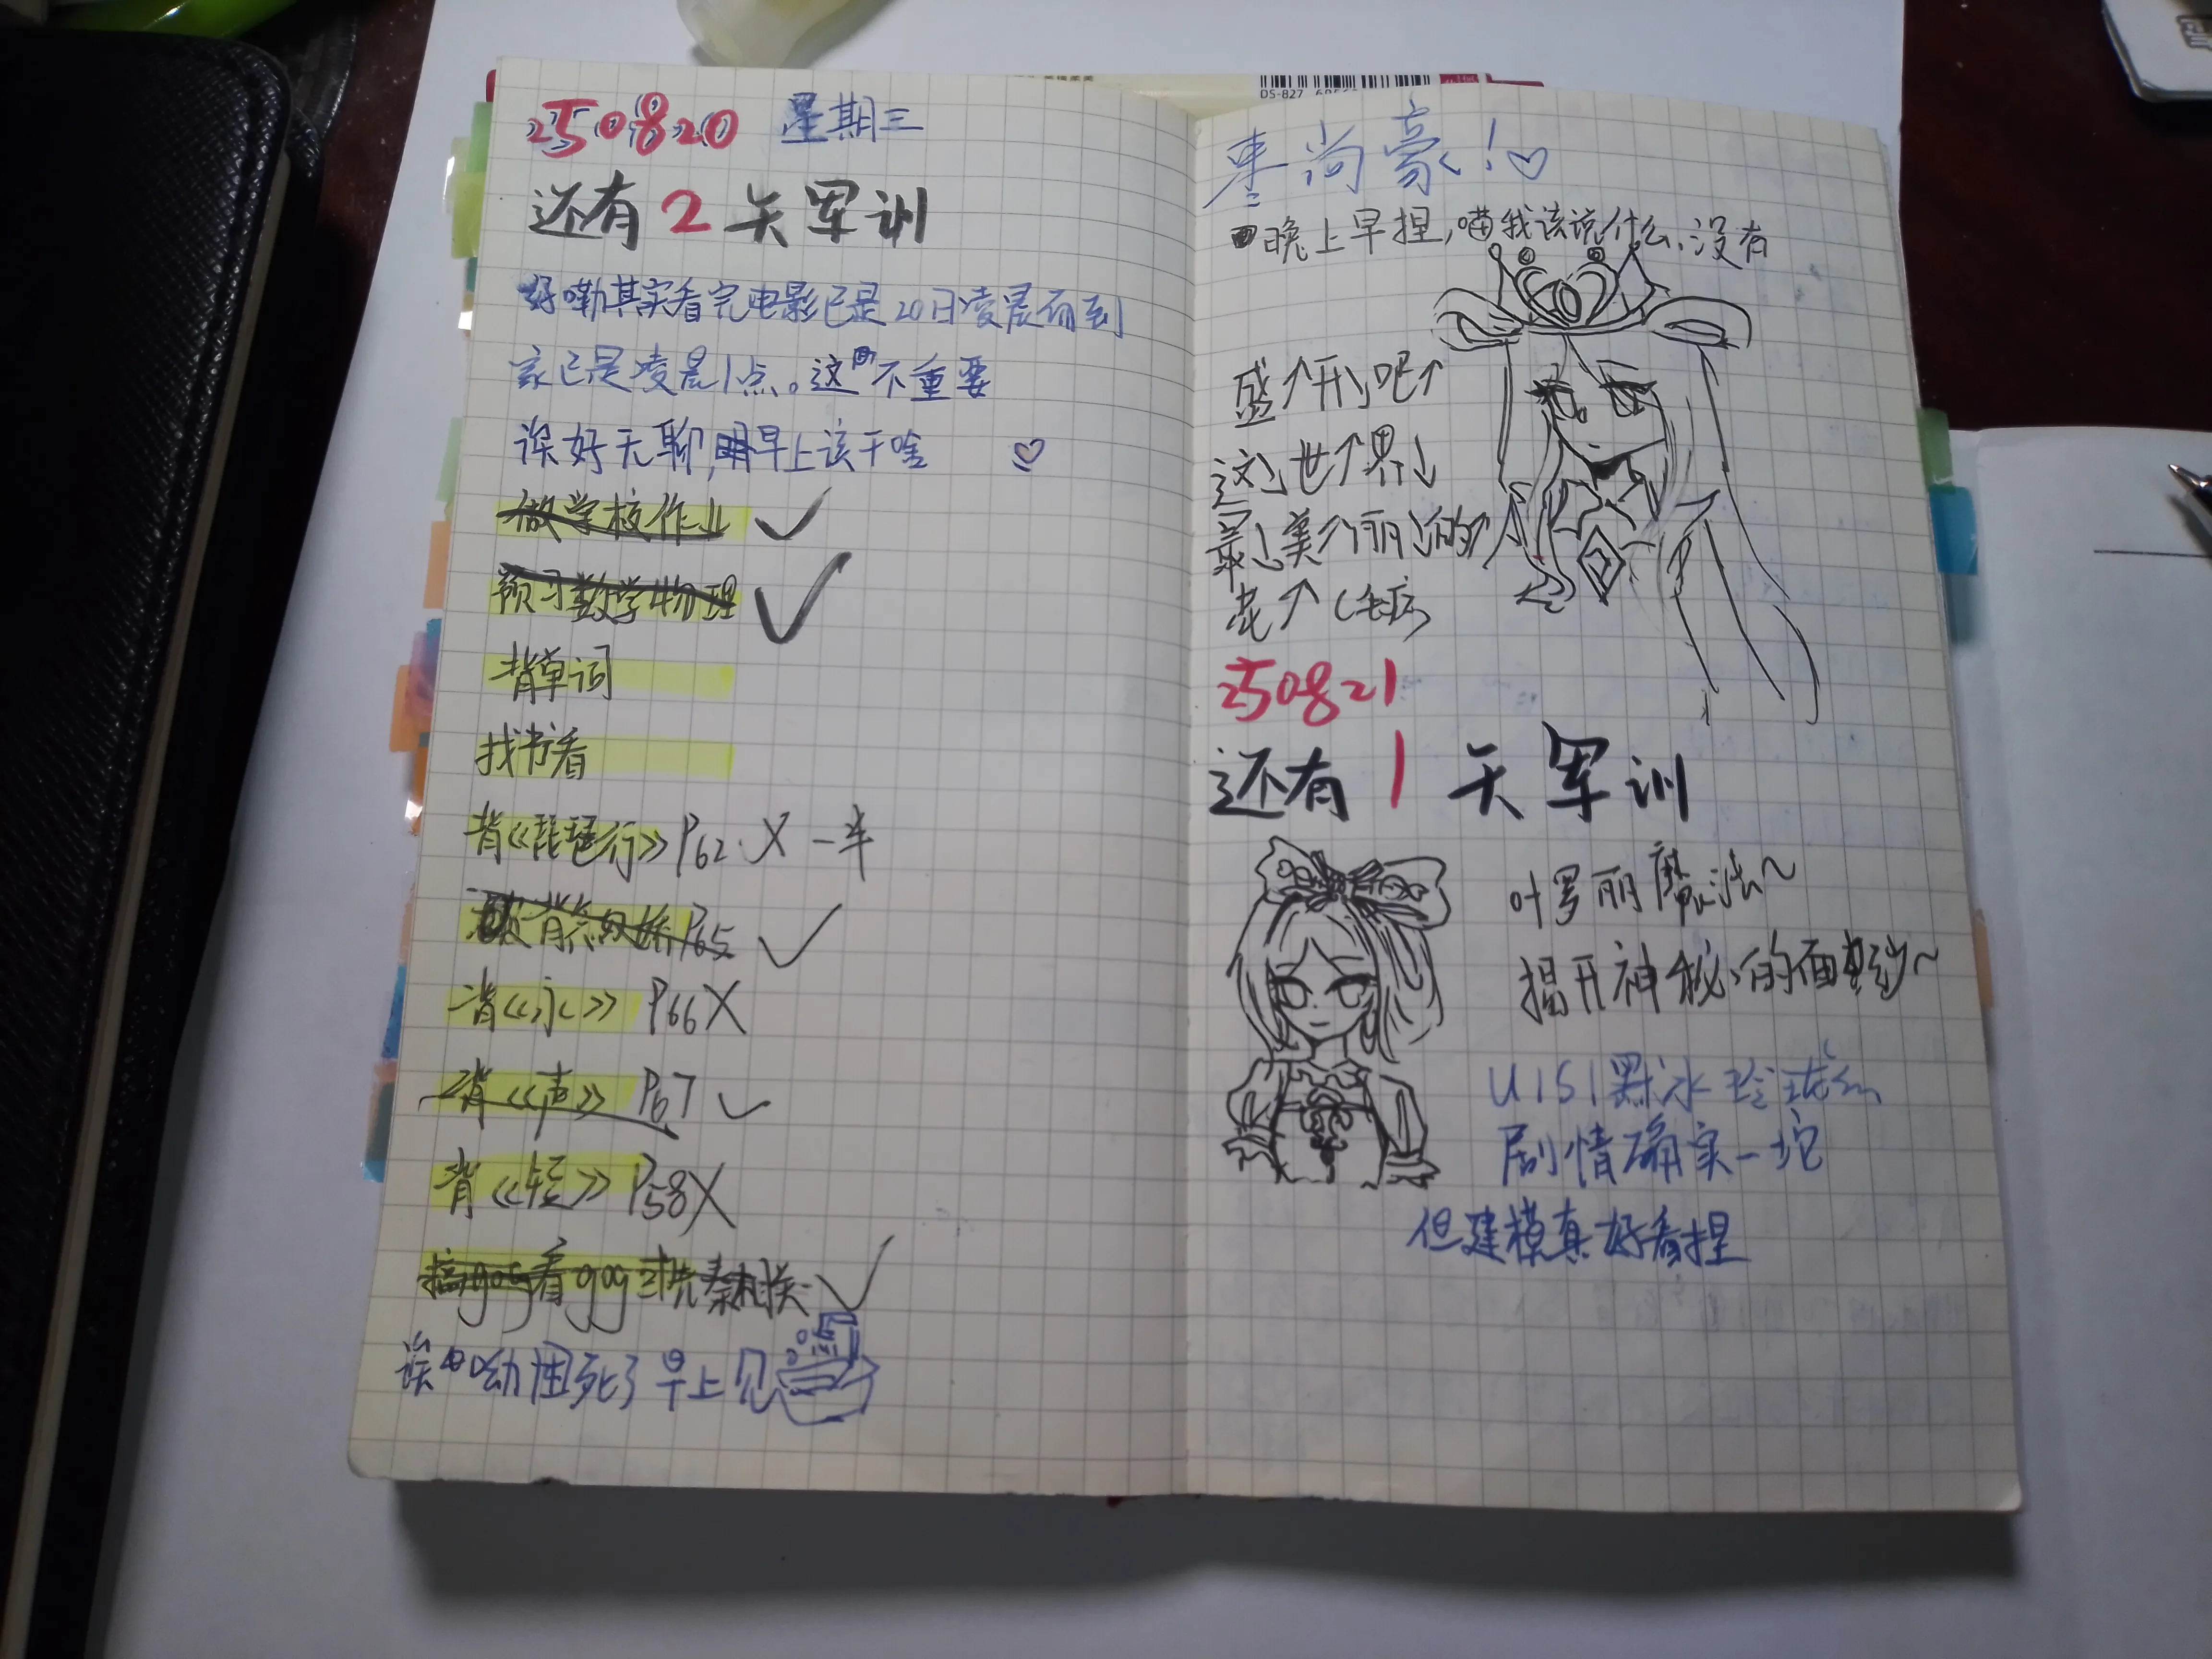 DS-827
250820 星期三
还有2天军训
好嘞其实看完电影已是20日凌晨而到
家已是凌晨1点。这不重要
诶好无聊,明早上该干啥 ♡
做学校作业 ✓
预习数学物理 ✓
背单词
找书看
背《琵琶行》P62 X 一半
背念奴娇P65 ✓
背《永》P66 X
背《声》P67 ✓
背《短》P58 X
搞gog看gog或先秦相关 ✓
诶呦困死了早上见
枣尚豪!♡
晚上早捏,喵我该说什么,没有
盛↑开↓吧↑
这↓世↑界↓
最↓美↑丽↓的↑
花↑(毛病)
250821
还有1天军训
叶罗丽魔法~
揭开神秘的面纱~
U1S1罗冰玲珑
剧情确实一坨
但建模真好看捏